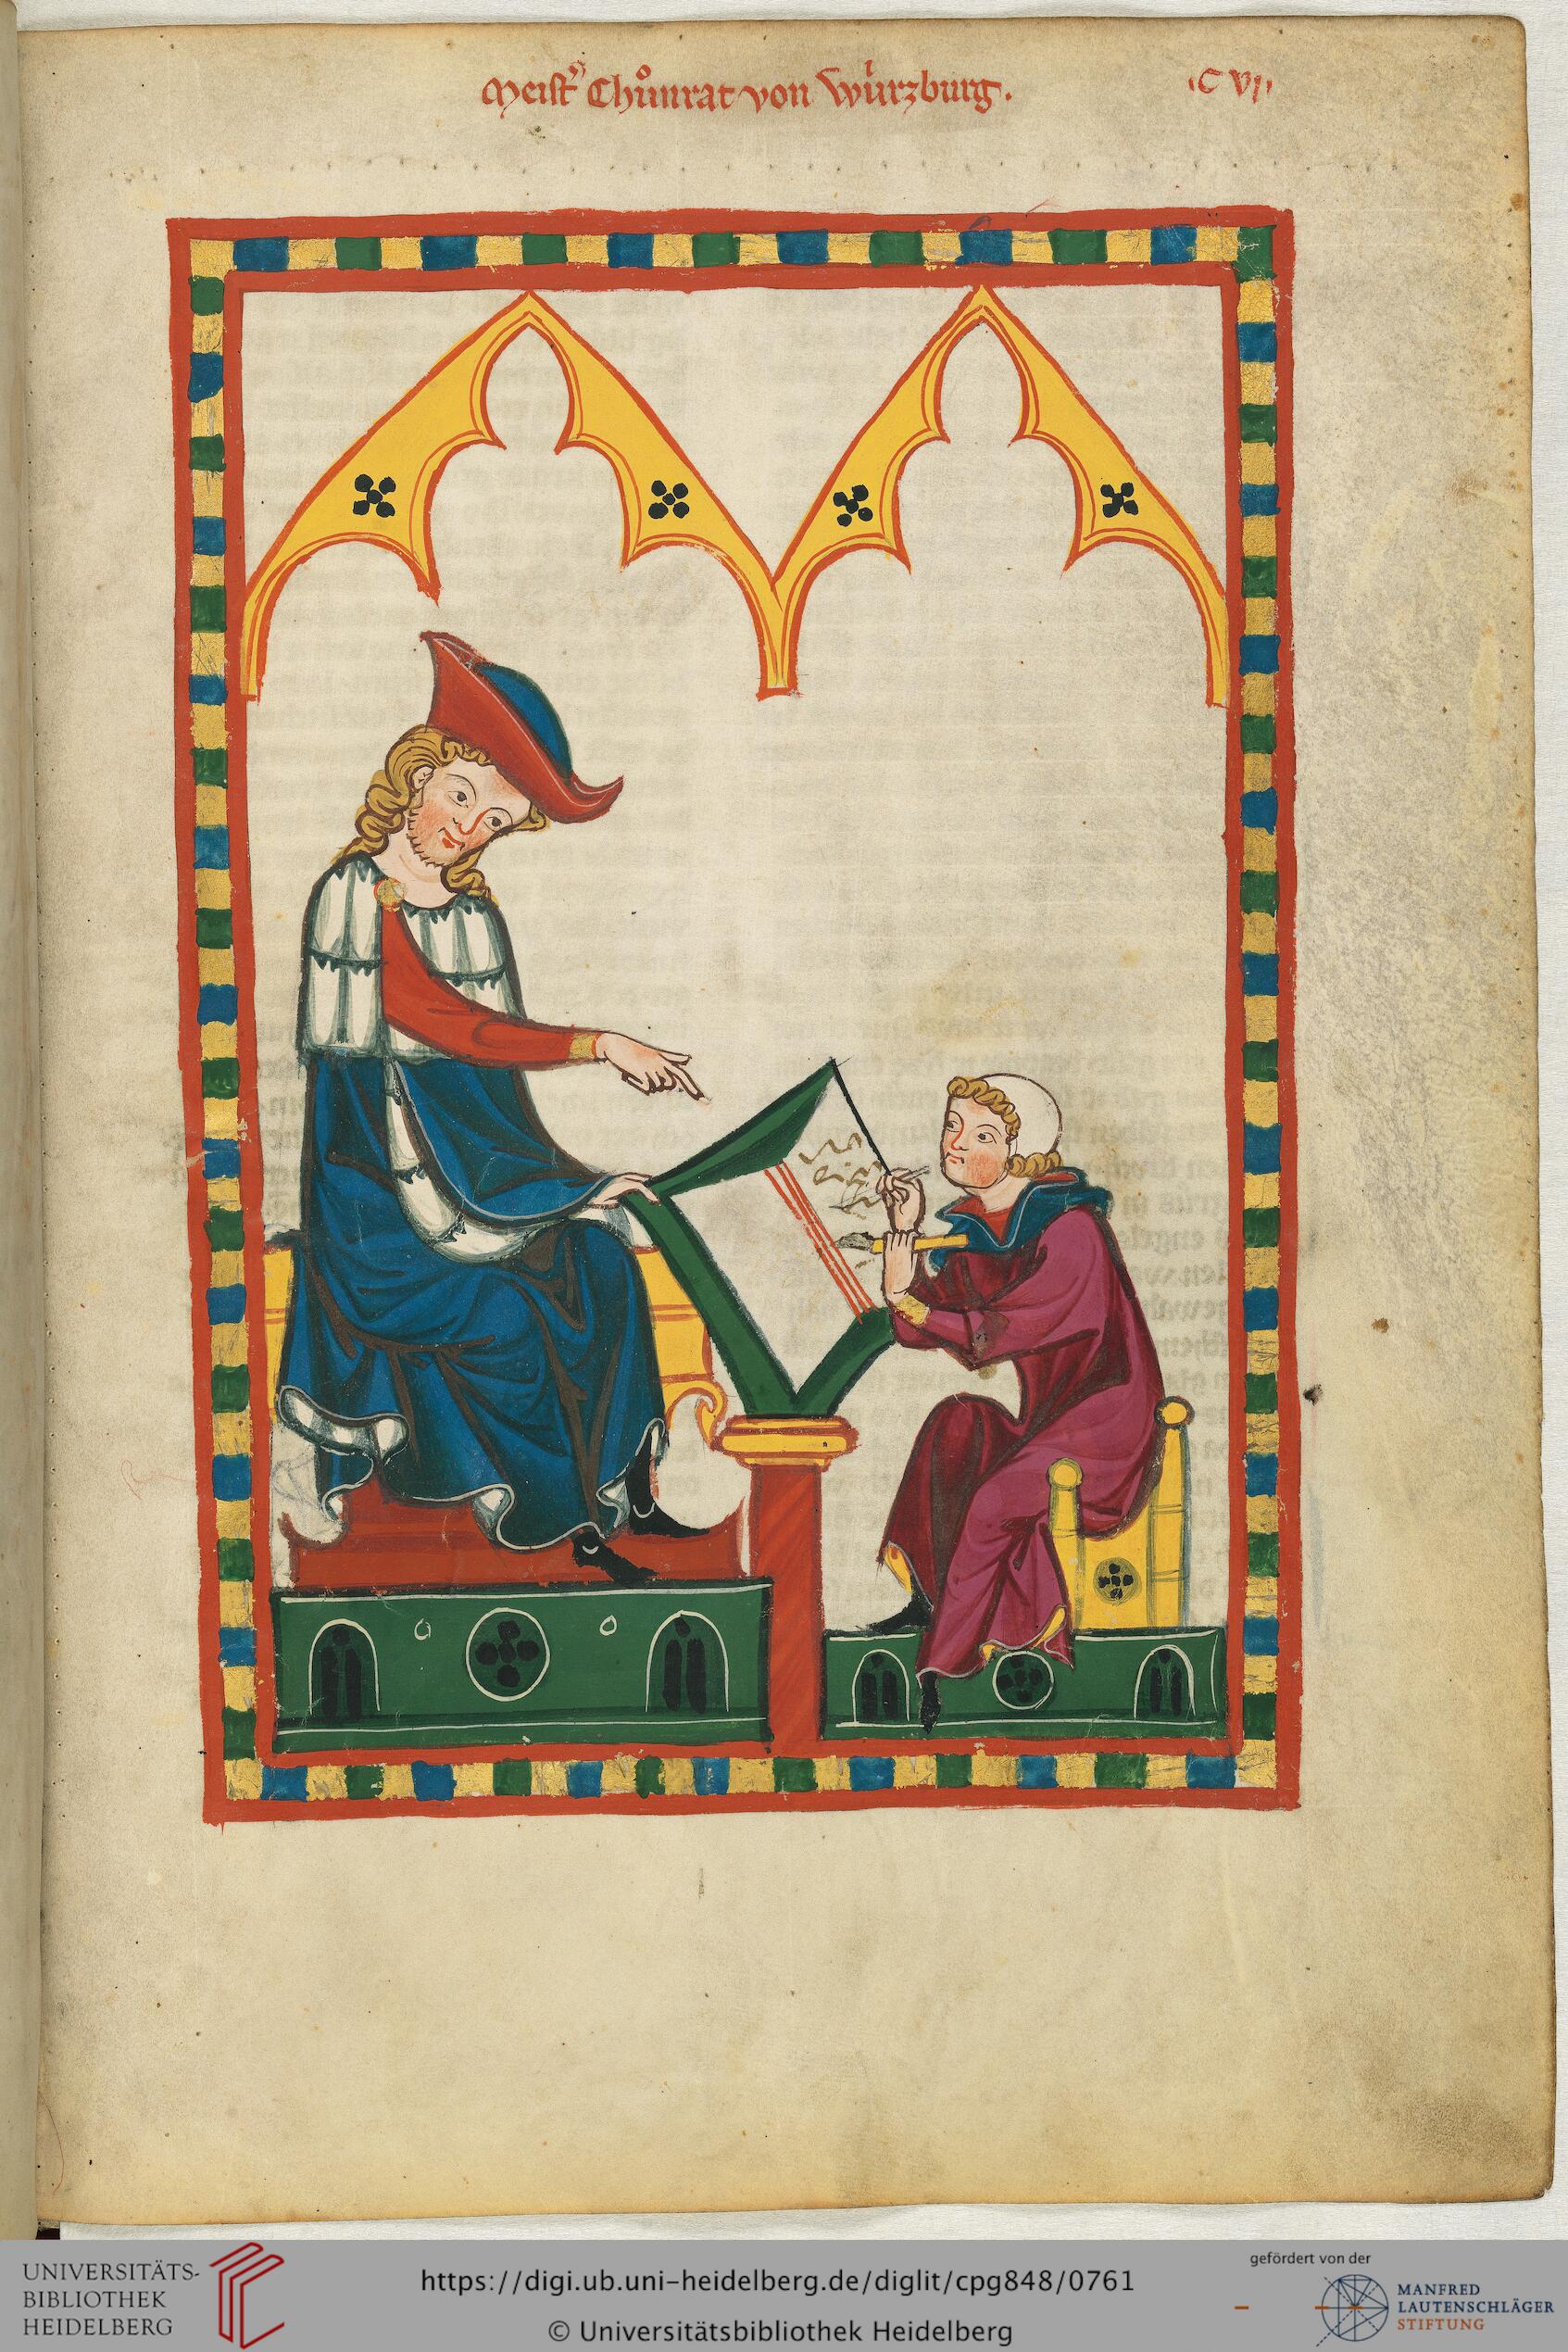 Meistˢ Chuͦnrat von Wúrzburg.
C VI
UNIVERSITÄTS-
BIBLIOTHEK
HEIDELBERG
https://digi.ub.uni-heidelberg.de/diglit/cpg848/0761
© Universitätsbibliothek Heidelberg
gefördert von der
MANFRED
LAUTENSCHLÄGER
STIFTUNG